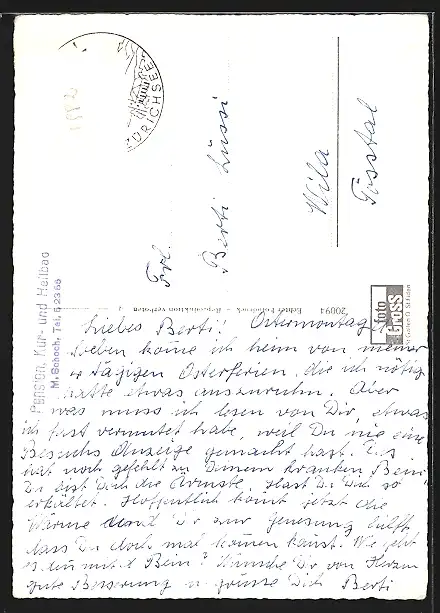 ZÜRICHSEE
Frl.
Berti Lüssi
Wila
Tösstal
Pension, Kur- und Heilbad
M. Schoch, Tel. 5 23 66
20094 Echte Reproduktion verboten
foto
Gross
St. Gallen
Liebes Berti! Ostermontag
Soeben kome ich heim von meiner
4 tägigen Osterferien, die ich nötig
hatte etwas auszuruhn. Aber
was muss ich lesen von Dir, etwas
ich fast vermutet habe, weil Du nie eine
Besuchs Anzeige gemacht hast. Das
hat noch gefehlt zu Deinem kranken Bein
Du bist doch die Ärmste, hast Du Dich so
erkältet. Hoffentlich komt jetzt die
Wärme damit Dir zur Genesung hilft
dass Du doch mal komen kanst. Wie geht
es nun mit d. Bein? Wünsche Dir von Herzen
gute Besserung u. grüsse Dich Berti